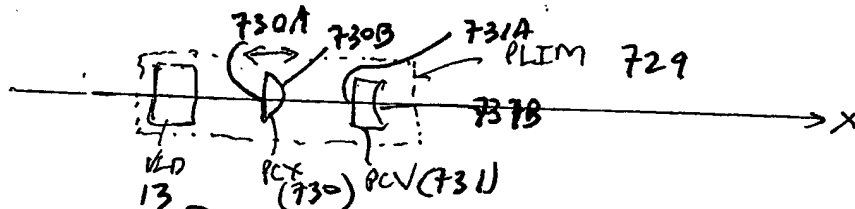 730A 730B 731A
PLIM 729
731B
X
VLD
13
PCX
(730)
PCV (731)